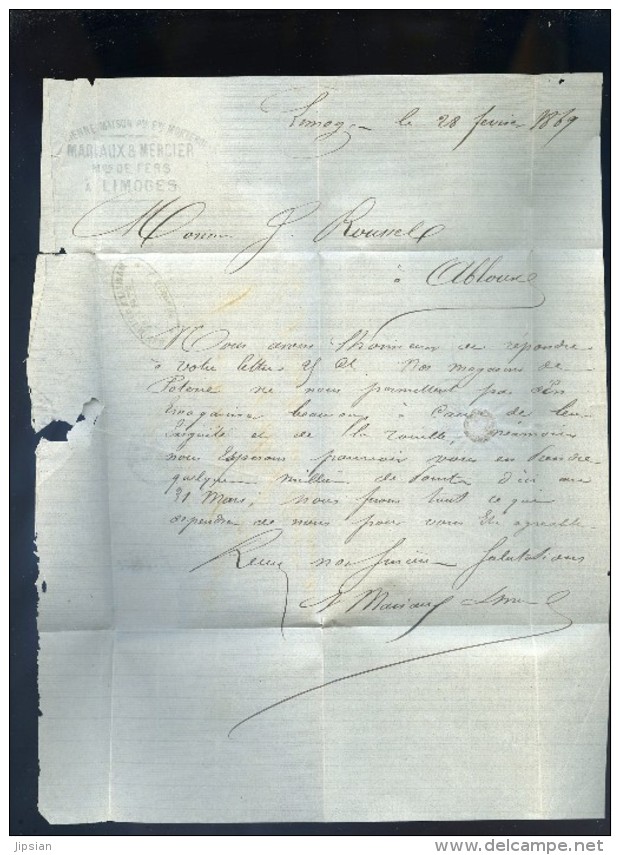 MARIAUX & MERCIER
Mds DE FERS
À LIMOGES
Limoges le 28 fevrier 1869
Monsieur J. Roussel
à Abloux
Nous avons l'honneur de répondre
à votre lettre 25 ct. Nos magasins de
ne nous permettent pas d'en
emmagasiner beaucoup à cause de leur
exiguité et de la rouille, néanmoins
nous esperons pouvoir vous en prendre
quelques milliers de d'ici au
31 Mars; nous ferons tout ce qui
dependra de nous pour vous être agréable
Recevez nos sincères salutations
Mariaux
jipsian
www.delcampe.net